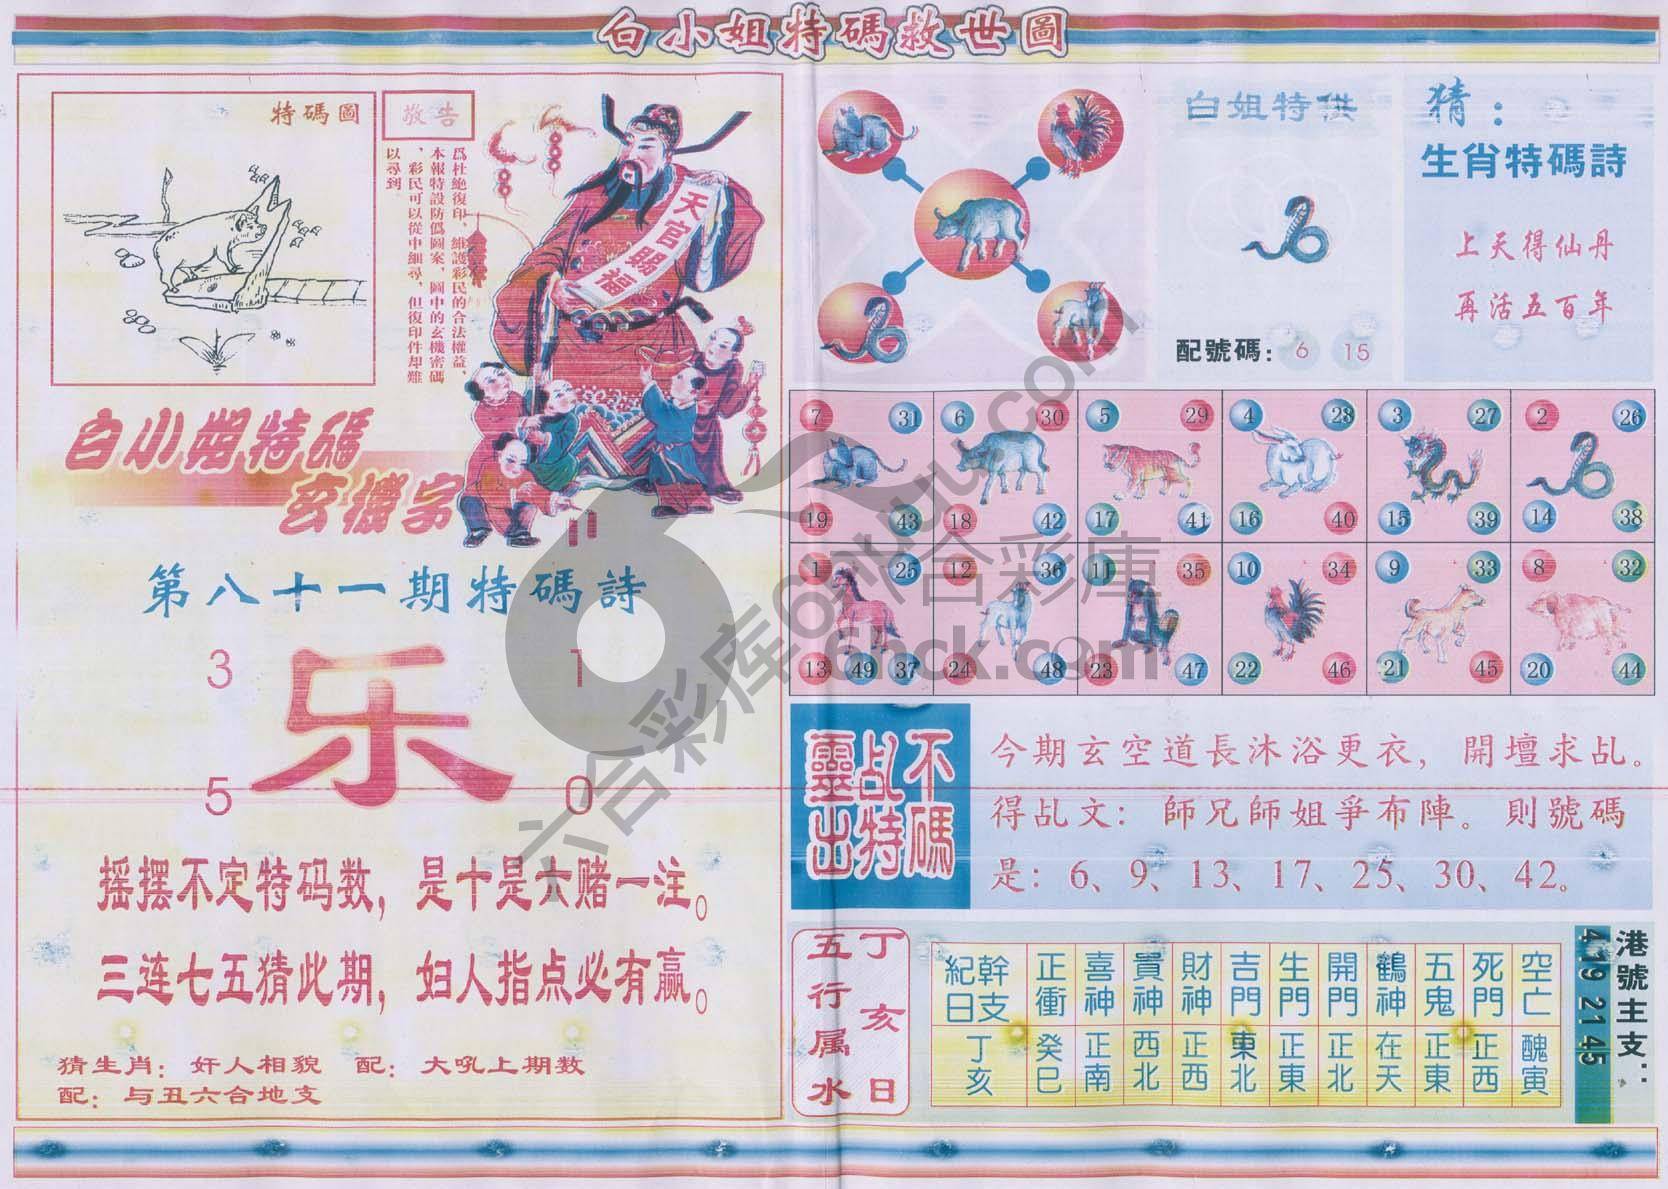 白小姐特碼救世圖
特碼圖
敬告
爲杜絶復印、維護彩民的合法權益，
本報特設防僞圖案，圖中的玄機密碼
，彩民可以從中細尋，但復印件却難
以尋到。
天官賜福
白小姐特碼
玄機字
第八十一期特碼詩
3 1
乐
5 0
摇摆不定特码数，是十是六赌一注。
三连七五猜此期，妇人指点必有赢。
猜生肖：奸人相貌 配：大吼上期数
配：与丑六合地支
白姐特供
配號碼：6 15
猜：
生肖特碼詩
上天得仙丹
再活五百年
7 31 6 30 5 29 4 28 3 27 2 26
19 43 18 42 17 41 16 40 15 39 14 38
1 25 12 36 11 35 10 34 9 33 8 32
13 49 37 24 48 23 47 22 46 21 45 20 44
不碼
乩特
靈出
今期玄空道長沐浴更衣，開壇求乩。
得乩文：師兄師姐爭布陣。則號碼
是：6、9、13、17、25、30、42。
丁亥日
五行属水
紀日幹支 正衝 喜神 貴神 財神 吉門 生門 開門 鶴神 五鬼 死門 空亡
丁亥 癸巳 正南 西北 正西 東北 正東 正北 在天 正東 正西 醜寅
港號主支：
4 19 21 45
六合彩库
六合彩庫
6hck.com